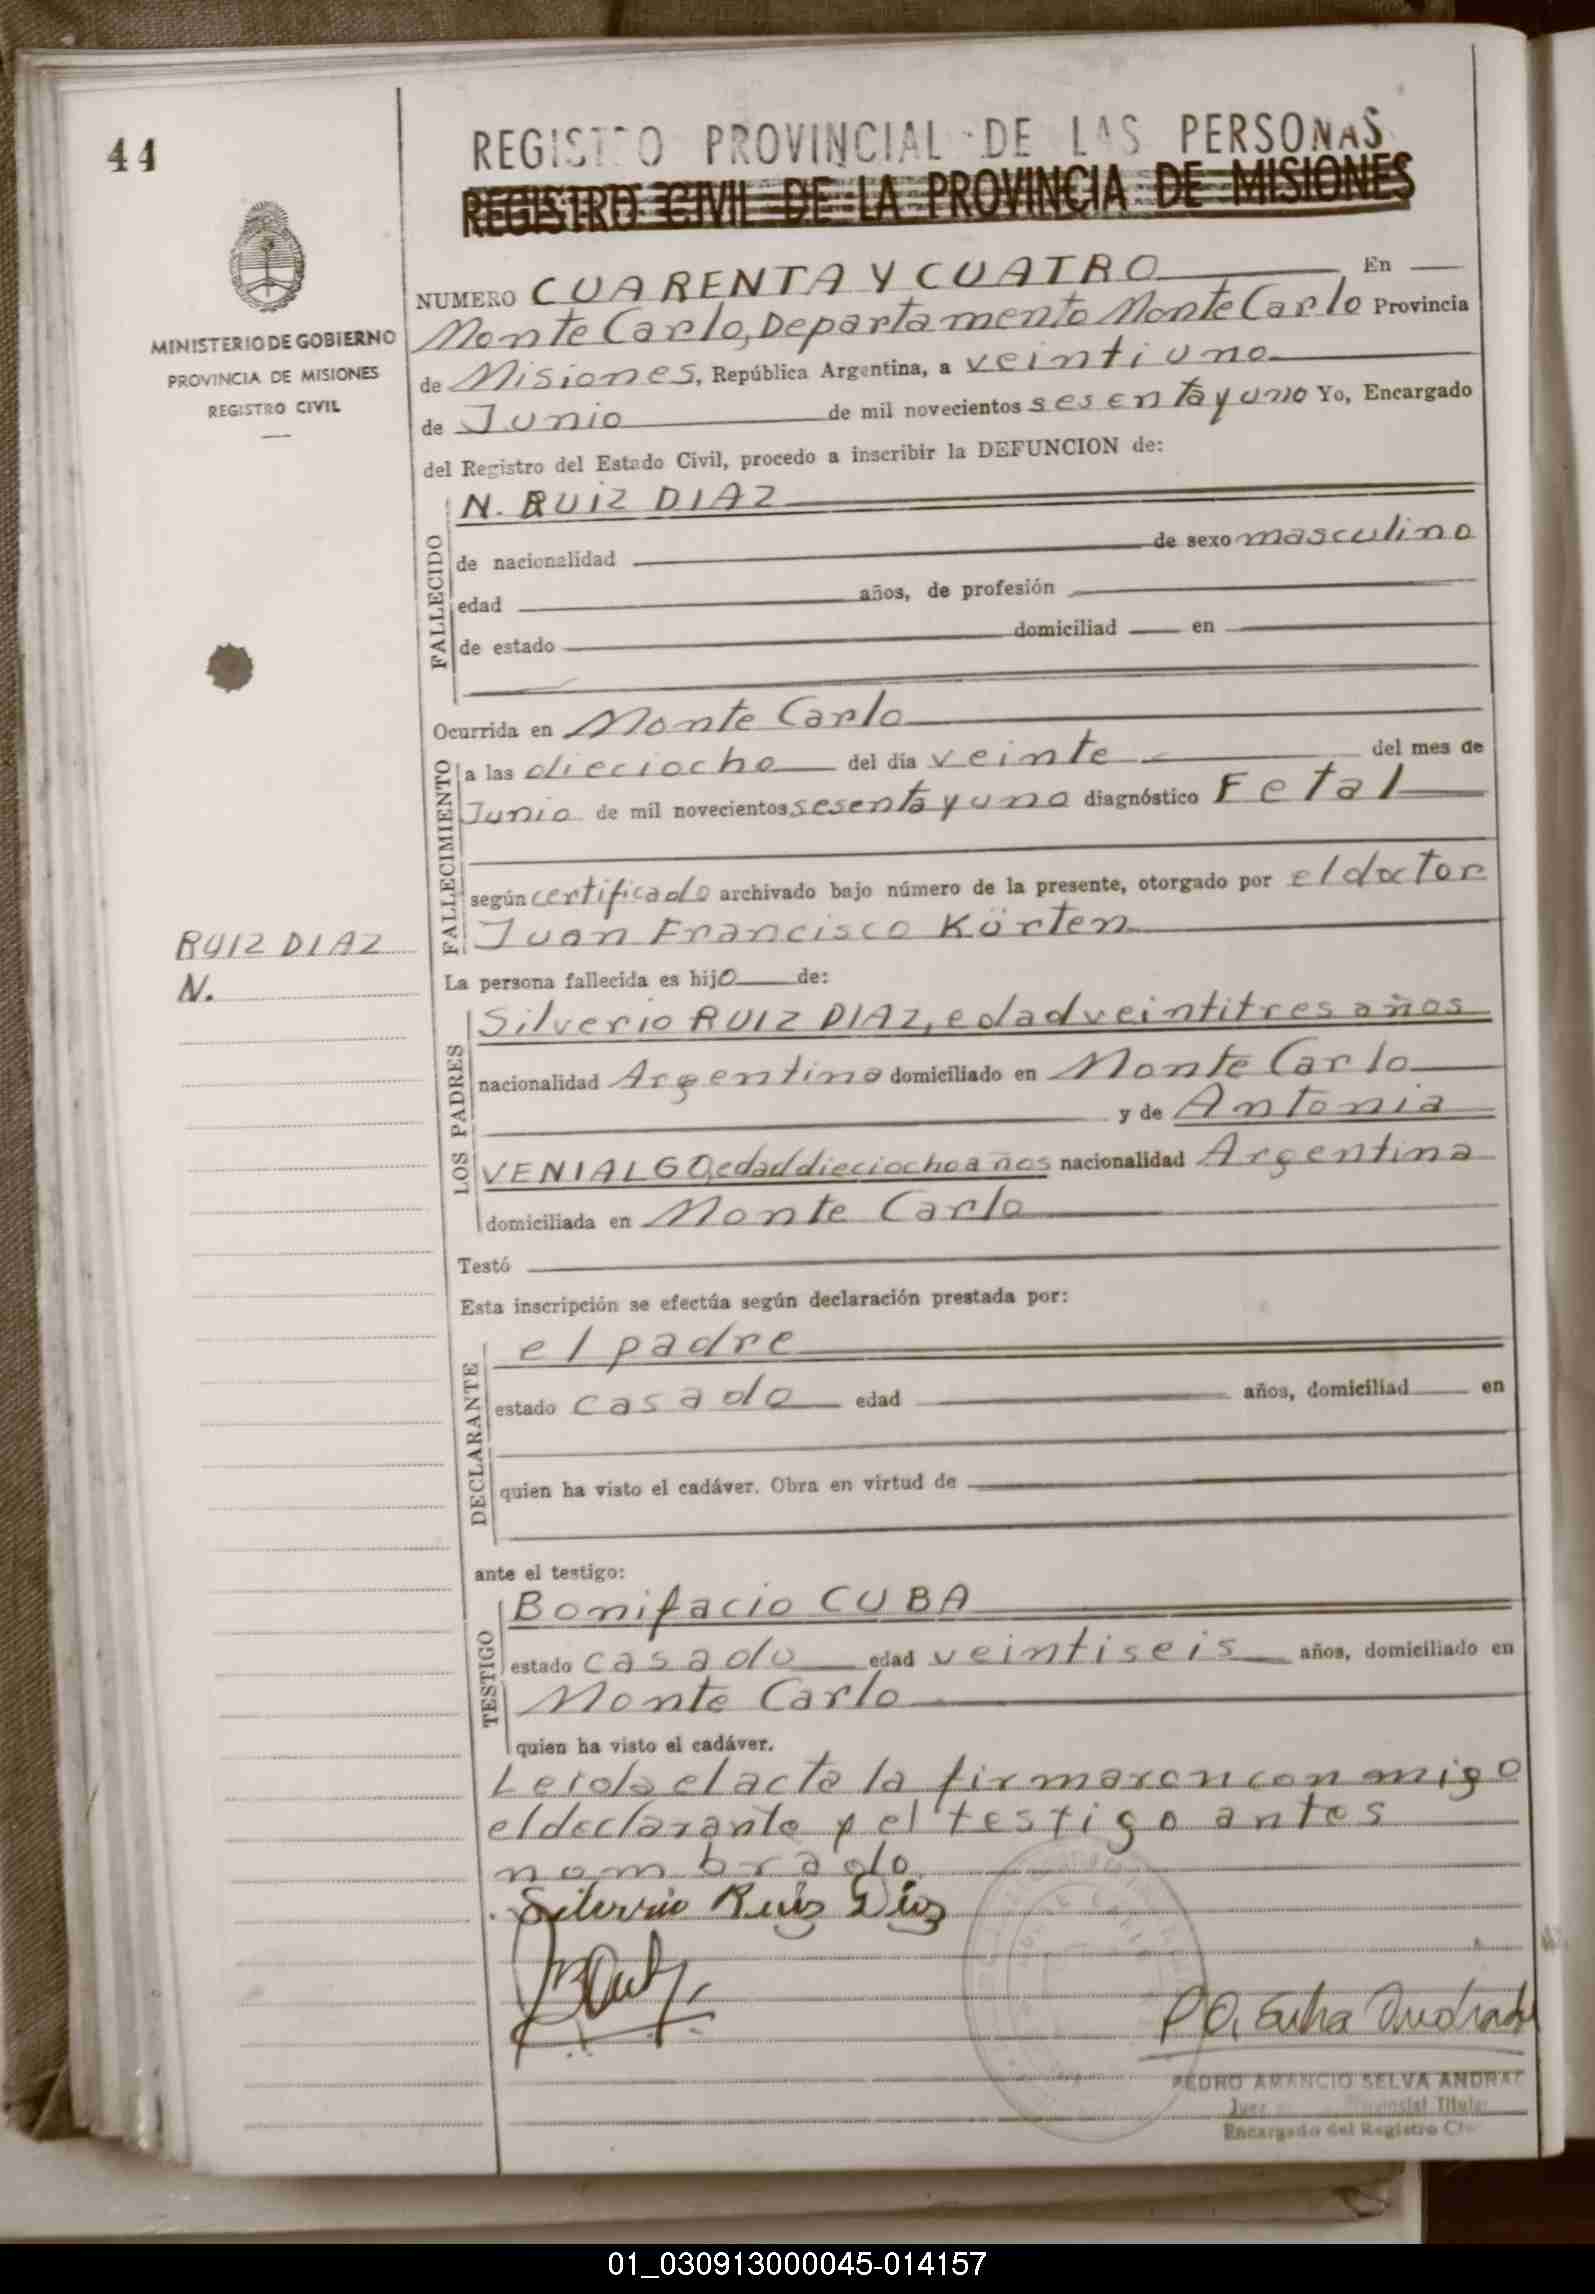 44
REGISTRO PROVINCIAL DE LAS PERSONAS
REGISTRO CIVIL DE LA PROVINCIA DE MISIONES
MINISTERIO DE GOBIERNO
PROVINCIA DE MISIONES
REGISTRO CIVIL
NUMERO CUARENTA Y CUATRO En
Monte Carlo, Departamento Monte Carlo Provincia
de Misiones, República Argentina, a veintiuno
de Junio de mil novecientos sesenta y uno Yo, Encargado
del Registro del Estado Civil, procedo a inscribir la DEFUNCION de:
FALLECIDO
N. RUIZ DIAZ
de nacionalidad de sexo masculino
edad años, de profesión
de estado domiciliad en
Ocurrida en Monte Carlo
FALLECIMIENTO
a las dieciocho del día veinte del mes de
Junio de mil novecientos sesenta y uno diagnóstico Fetal
según certificado archivado bajo número de la presente, otorgado por el doctor
Juan Francisco Körten
RUIZ DIAZ
N.
La persona fallecida es hijo de:
LOS PADRES
Silverio RUIZ DIAZ, edad veintitres años
nacionalidad Argentina domiciliado en Monte Carlo
y de Antonia
VENIALGO, edad dieciocho años nacionalidad Argentina
domiciliada en Monte Carlo
Testó
Esta inscripción se efectúa según declaración prestada por:
DECLARANTE
el padre
estado casado edad años, domiciliad en
quien ha visto el cadáver. Obra en virtud de
ante el testigo:
TESTIGO
Bonifacio CUBA
estado casado edad veintiseis años, domiciliado en
Monte Carlo
quien ha visto el cadáver.
Leida el acta la firmaron conmigo
el declarante y el testigo antes
nombrado.
Silverio Ruiz Diaz
P.O. Selva Andrade
PEDRO AMANCIO SELVA ANDRAD
Juez Titular
Encargado del Registro Ci
01_030913000045-014157